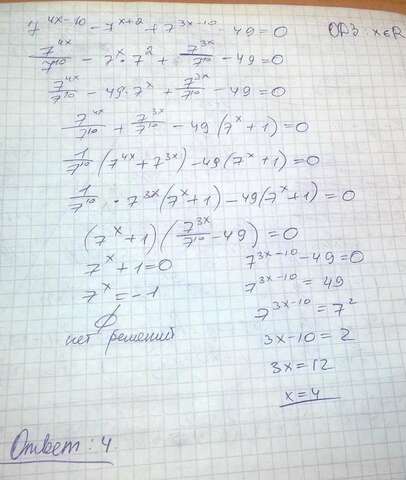 7^(4x-10) - 7^(x+2) + 7^(3x-10) - 49 = 0 ОДЗ: x∈R
7^(4x)/7^10 - 7^x · 7^2 + 7^(3x)/7^10 - 49 = 0
7^(4x)/7^10 - 49·7^x + 7^(3x)/7^10 - 49 = 0
7^(4x)/7^10 + 7^(3x)/7^10 - 49(7^x + 1) = 0
1/7^10 (7^(4x) + 7^(3x)) - 49(7^x + 1) = 0
1/7^10 · 7^(3x)(7^x + 1) - 49(7^x + 1) = 0
(7^x + 1)(7^(3x)/7^10 - 49) = 0
7^x + 1 = 0
7^x = -1
∅
нет решений
7^(3x-10) - 49 = 0
7^(3x-10) = 49
7^(3x-10) = 7^2
3x - 10 = 2
3x = 12
x = 4
Ответ: 4.